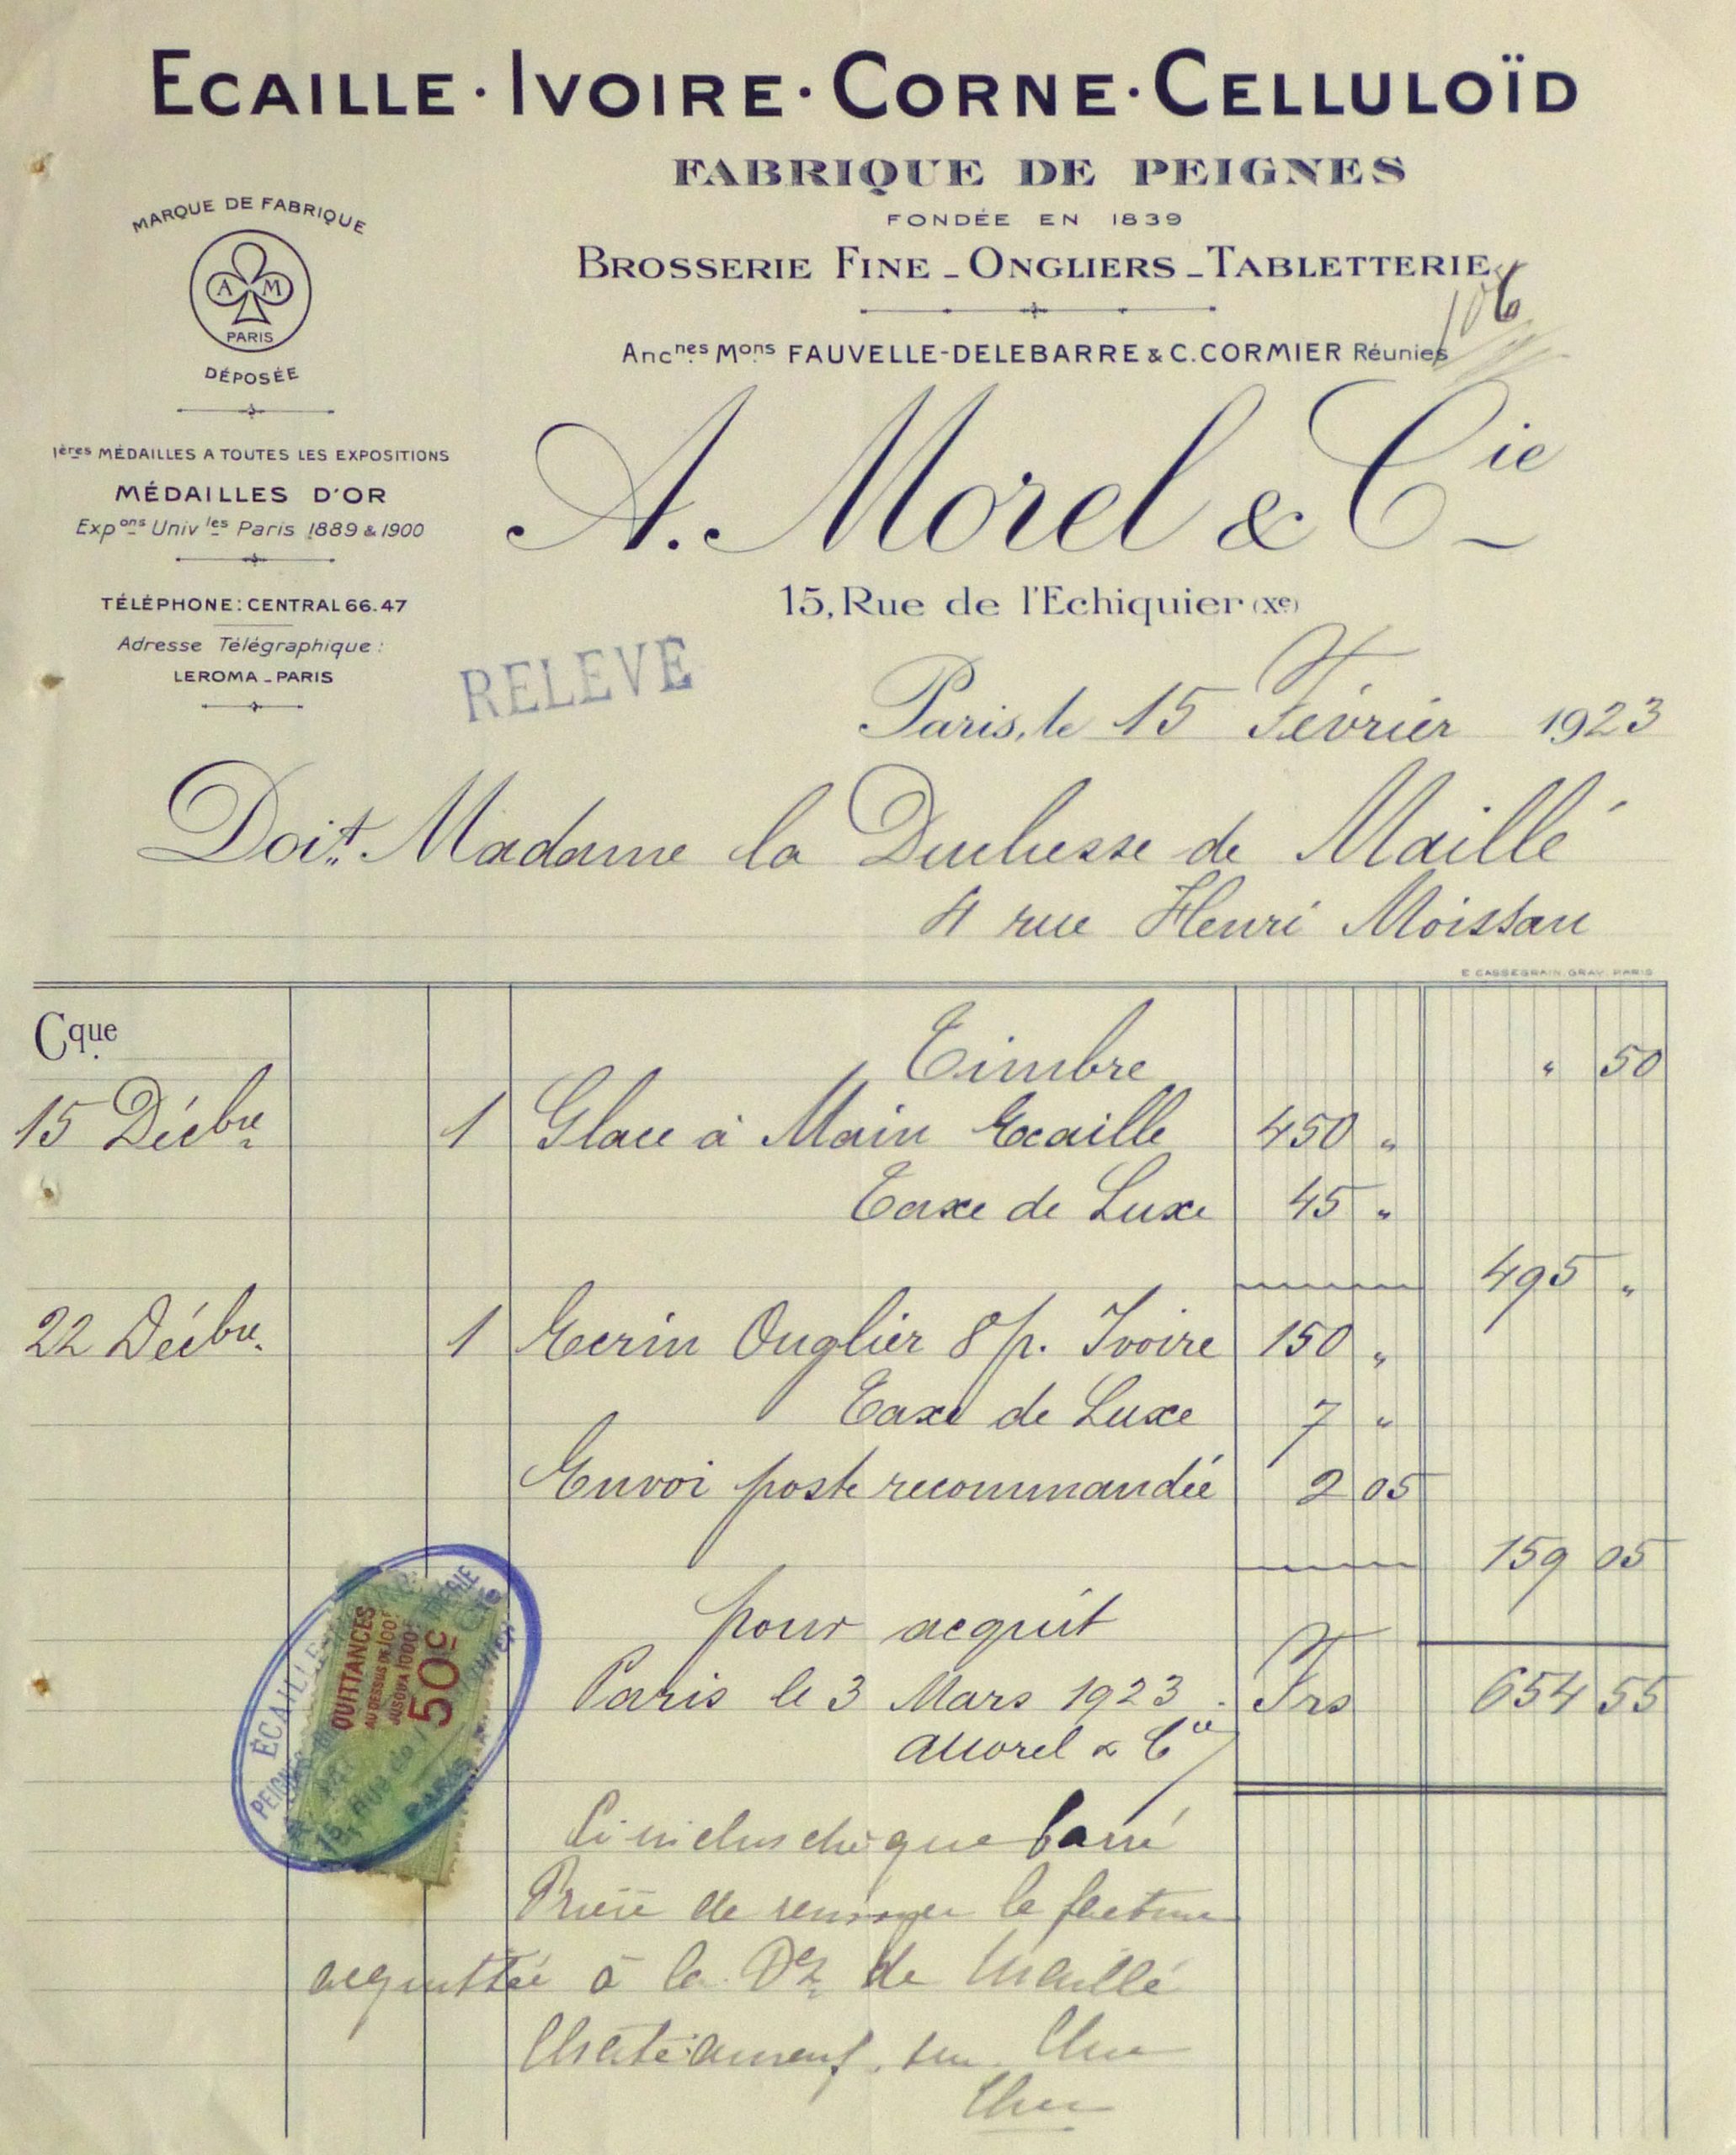 ECAILLE · IVOIRE · CORNE · CELLULOÏD
FABRIQUE DE PEIGNES
FONDÉE EN 1839
BROSSERIE FINE - ONGLIERS - TABLETTERIE
106
Ancnes Mons FAUVELLE-DELEBARRE & C. CORMIER Réunies
A. Morel & Cie
15, Rue de l'Echiquier (Xe)
MARQUE DE FABRIQUE
A M
PARIS
DÉPOSÉE
1ères MÉDAILLES A TOUTES LES EXPOSITIONS
MÉDAILLES D'OR
Expons Univles Paris 1889 & 1900
TÉLÉPHONE: CENTRAL 66.47
Adresse Télégraphique :
LEROMA - PARIS
RELEVE
Paris, le 15 Février 1923
Doit Madame la Duchesse de Maillé
4 rue Henri Moissan
E. CASSEGRAIN, GRAV. PARIS
Cque
Timbre " 50
15 Décbre 1 Glace à Main Ecaille 450 "
Taxe de Luxe 45 "
495 "
22 Décbre. 1 Ecrin Onglier 8 p. Ivoire 150 "
Taxe de Luxe 7 "
Envoi poste recommandée 2 05
159 05
pour acquit
Paris le 3 Mars 1923. Frs 654 55
AMorel & Cie
QUITTANCES
AU DESSUS DE 100F
JUSQU'A 1000F
50c
ÉCAILLE
PEIGNES
15, Rue de l'
PARIS
Ci inclus chèque barré
Prière de renvoyer la facture
acquittée à la Dsse de Maillé
Chateauneuf. sur Cher
Cher